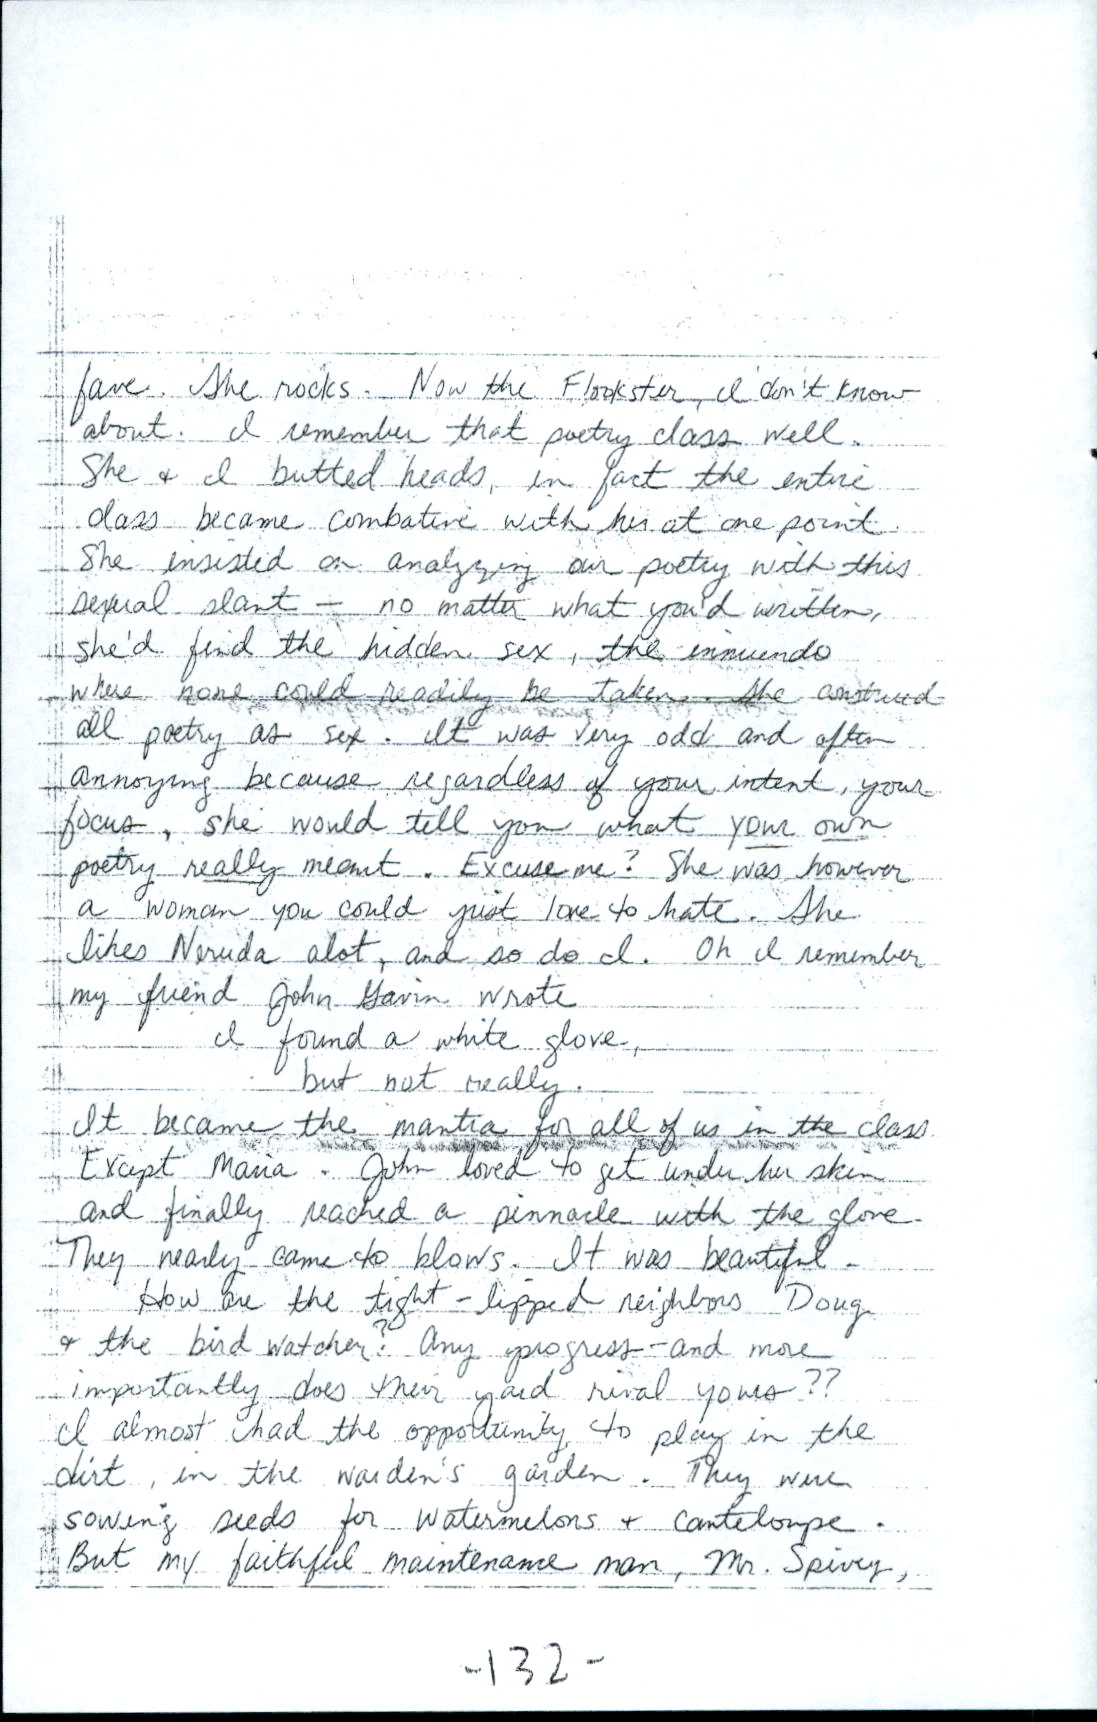 fave. She rocks. Now the Flookster, I don't know
about. I remember that poetry class well.
She & I butted heads, in fact the entire
class became combative with her at one point.
She insisted on analyzing our poetry with this
sexual slant – no matter what you'd written,
she'd find the hidden sex, the innuendo
where none could readily be taken. She construed
all poetry as sex. It was very odd and often
annoying because regardless of your intent, your
focus, she would tell you what your own
poetry really meant. Excuse me? She was however
a woman you could just love to hate. She
likes Neruda alot, and so do I. Oh I remember
my friend John Gavin wrote
I found a white glove,
but not really.
It became the mantra for all of us in the class
Except Maria. John loved to get under her skin
and finally reached a pinnacle with the glove.
They nearly came to blows. It was beautiful.
How are the tight-lipped neighbors Doug
& the bird watcher? Any progress – and more
importantly does their yard rival yours??
I almost had the opportunity to play in the
dirt, in the warden's garden. They were
sowing seeds for watermelons + canteloupe.
But my faithful maintenance man, Mr. Spivey,
-132-